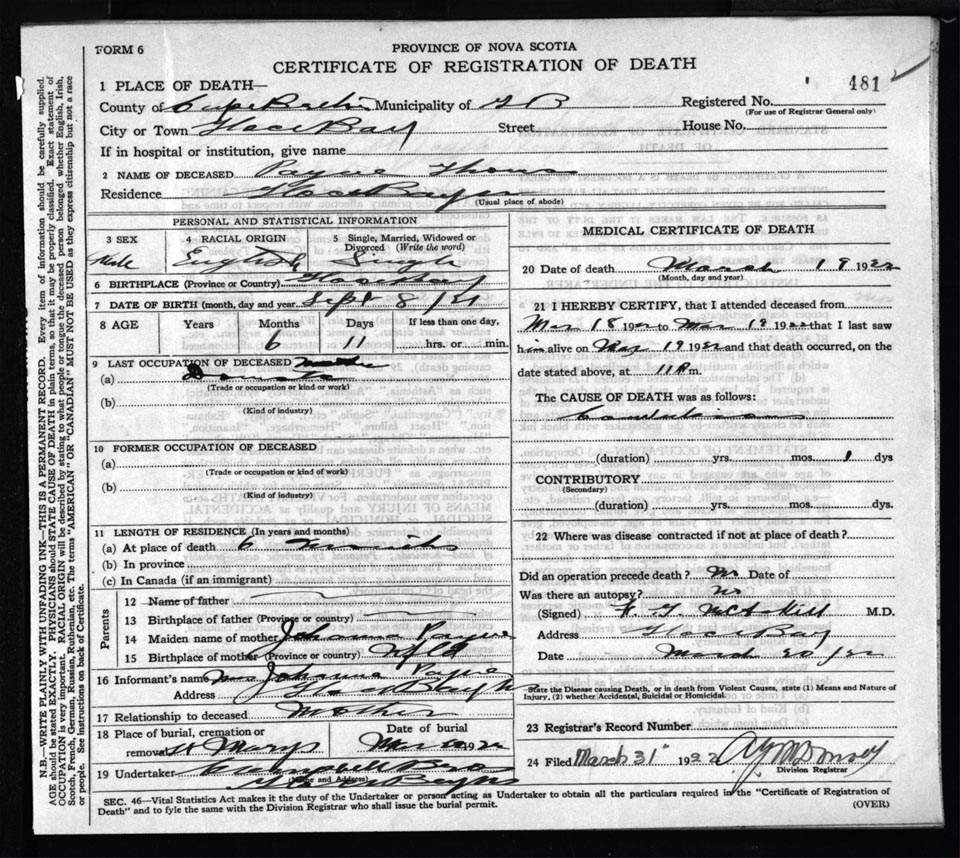 FORM 6
PROVINCE OF NOVA SCOTIA
CERTIFICATE OF REGISTRATION OF DEATH
481
1 PLACE OF DEATH—
County of Cape Breton Municipality of G B Registered No.
(For use of Registrar General only)
City or Town Glace Bay Street House No.
If in hospital or institution, give name
2 NAME OF DECEASED Payne Thomas
Residence Glace Bay
(Usual place of abode)
PERSONAL AND STATISTICAL INFORMATION
3 SEX 4 RACIAL ORIGIN 5 Single, Married, Widowed or Divorced (Write the word)
Male English Single
6 BIRTHPLACE (Province or Country)
7 DATE OF BIRTH (month, day and year) Sept 8/21
8 AGE Years Months Days If less than one day,
6 11 hrs. or min.
9 LAST OCCUPATION OF DECEASED
(a)
(Trade or occupation or kind or work)
(b)
(Kind of industry)
10 FORMER OCCUPATION OF DECEASED
(a)
(Trade or occupation or kind of work)
(b)
(Kind of industry)
11 LENGTH OF RESIDENCE (In years and months)
(a) At place of death 6 months
(b) In province
(c) In Canada (if an immigrant)
Parents
12 Name of father
13 Birthplace of father (Province or country)
14 Maiden name of mother Johanna Payne
15 Birthplace of mother (Province or country) Nfld
16 Informant's name Mrs Johanna Payne
Address Glace Bay
17 Relationship to deceased Mother
18 Place of burial, cremation or removal Date of burial
St Marys Mar 1922
19 Undertaker Campbell Bro
(Name and Address)
Glace Bay
MEDICAL CERTIFICATE OF DEATH
20 Date of death March 19 1922
(Month, day and year)
21 I HEREBY CERTIFY, that I attended deceased from
Mar 18 1922 to Mar 19 1922 that I last saw
him alive on Mar 19 1922 and that death occurred, on the
date stated above, at 11 P.m.
The CAUSE OF DEATH was as follows:
Convulsions
(duration) yrs. mos. 1 dys
CONTRIBUTORY
(Secondary)
(duration) yrs. mos. dys.
22 Where was disease contracted if not at place of death?
Did an operation precede death? No Date of
Was there an autopsy? No
(Signed) M.D.
Address Glace Bay
Date March 20/22
State the Disease causing Death, or in death from Violent Causes, state (1) Means and Nature of
Injury, (2) whether Accidental, Suicidal or Homicidal.
23 Registrar's Record Number
24 Filed March 31st 1922
Division Registrar
SEC. 46—Vital Statistics Act makes it the duty of the Undertaker or person acting as Undertaker to obtain all the particulars required in the "Certificate of Registration of
Death" and to fyle the same with the Division Registrar who shall issue the burial permit.
(OVER)
N.B.—WRITE PLAINLY WITH UNFADING INK—THIS IS A PERMANENT RECORD. Every item of information should be carefully supplied.
AGE should be stated EXACTLY. PHYSICIANS should STATE CAUSE OF DEATH in plain terms, so that it may be properly classified. Exact statement of
OCCUPATION is very important. RACIAL ORIGIN will be described by stating to what people or tongue the deceased person belonged whether English, Irish,
Scotch, French, German, Russian, Ruthenian, etc. The terms "AMERICAN" OR "CANADIAN" MUST NOT BE USED as they express citizenship but not a race
or people. See instructions on back of Certificate.